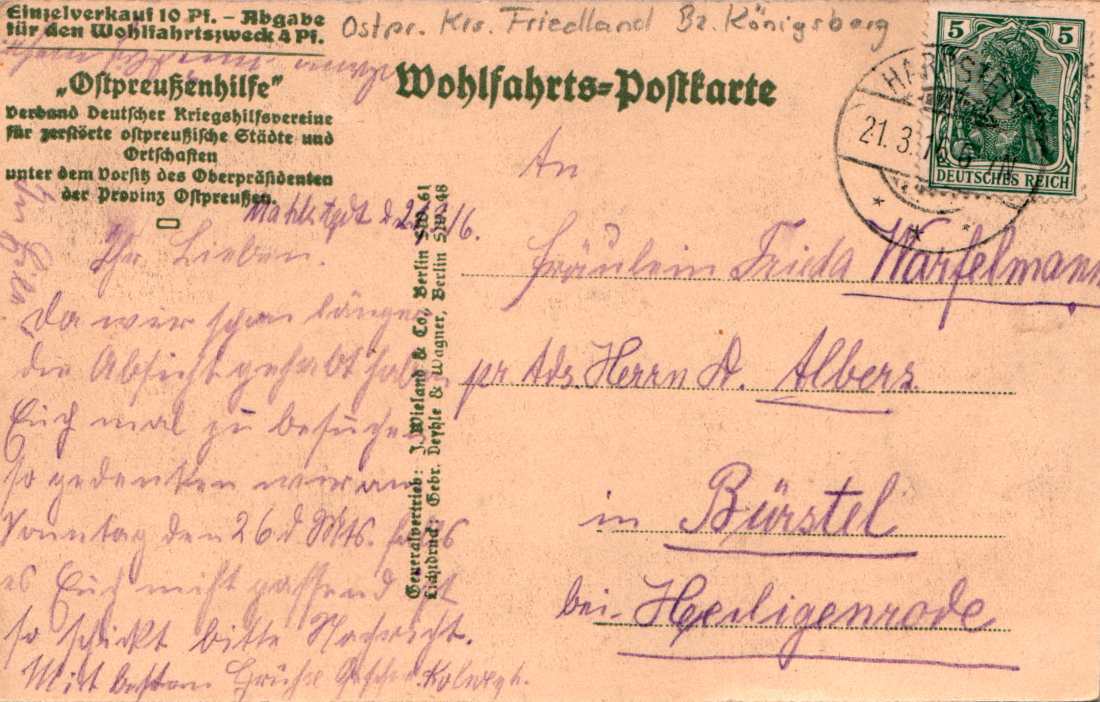 Einzelverkauf 10 Pf. – Abgabe
für den Wohlfahrtszweck 4 Pf.
Ostpr. Krs. Friedland Bz. Königsberg
„Ostpreußenhilfe"
Verband Deutscher Kriegshilfsvereine
für zerstörte ostpreußische Städte und
Ortschaften
unter dem Vorsitz des Oberpräsidenten
der Provinz Ostpreußen.
Wohlfahrts-Postkarte
5 5
DEUTSCHES REICH
21.3.16
Ihr Lieben.
Da wir schon länger
die Absicht gehabt haben
Euch mal zu besuchen
so gedenken wir am
Sonntag den 26 d. Mts. falls
es Euch nicht passend ist
so schickt bitte Nachricht.
Mit besten Grüße
Generalvertrieb: J. Wieland & Co, Berlin SW. 61
Lichtdruck: Gebr. Deyhle & Wagner, Berlin SW. 48
An
Fräulein Frieda Warfelmann
pr Adr. Herrn A. Albers.
in Bürstel
bei Heiligenrode